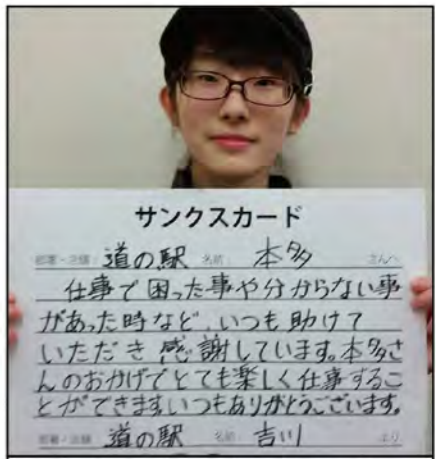 サンクスカード
部署・店舗 道の駅 名前 本多 さんへ
仕事で困った事や分からない事
があった時など、いつも助けて
いただき感謝しています。本多さ
んのおかげでとても楽しく仕事するこ
とができます。いつもありがとうございます。
部署・店舗 道の駅 名前 吉川 より